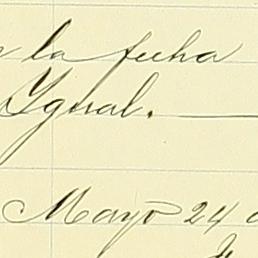 la fecha
Ygual.
Mayo 24